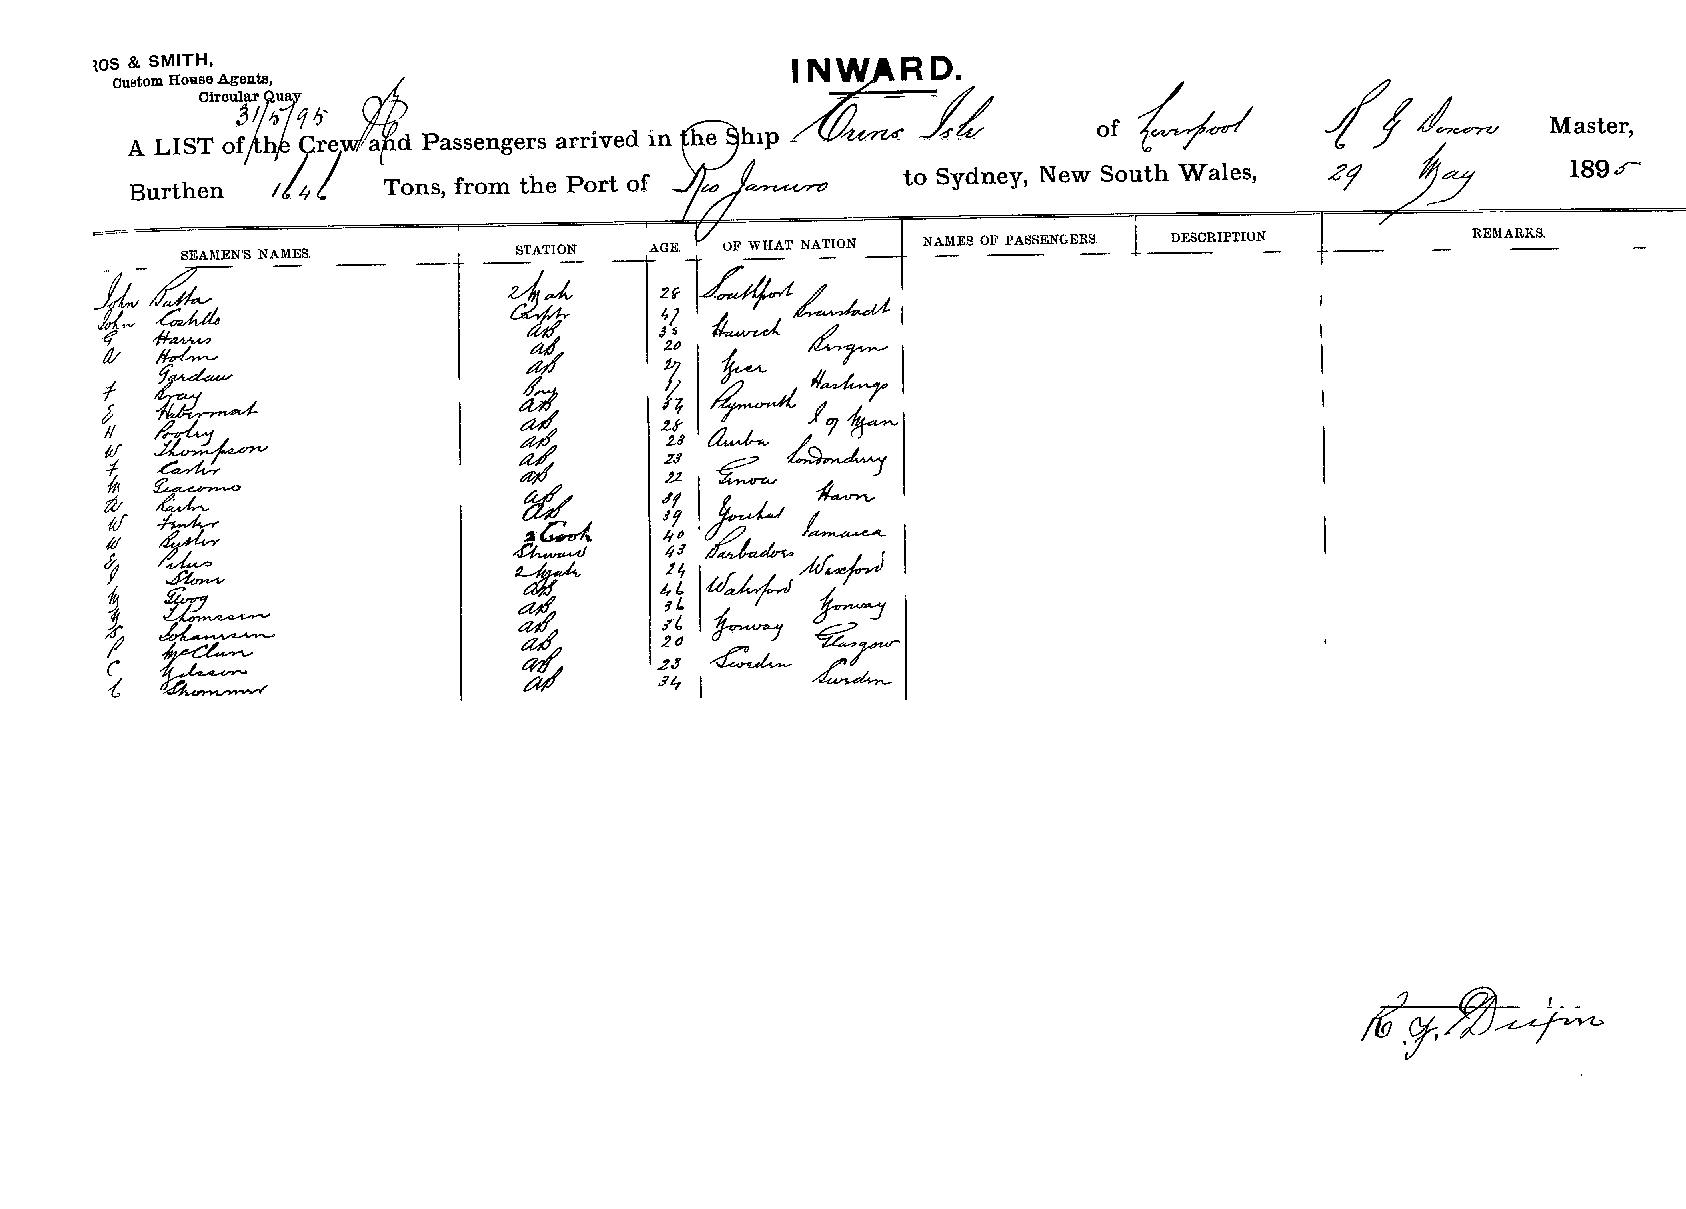 ROS & SMITH,
Custom House Agents,
Circular Quay
31/5/95
INWARD.
A LIST of the Crew and Passengers arrived in the Ship Isle of Liverpool R G Dixon Master,
Burthen 1646 Tons, from the Port of Rio Janiero to Sydney, New South Wales, 29 May 1895
SEAMEN'S NAMES. STATION AGE. OF WHAT NATION NAMES OF PASSENGERS. DESCRIPTION REMARKS.
John 2 Mate 28 Southport
John Costello Carptr 47
G Harris AB 38 Harwich
A Holm AB 20 Bergen
AB 27
F Bray Boy 17 Hastings
E AB Plymouth
H Pooley AB 28 I of Man
W Thompson AB 23
F Carter AB 23 Londonderry
M Giacomo AB 22 Genoa
AB 39
W AB 39 Youghal
W Butler 2 Cook 40 Jamaica
E Peters Steward 43 Barbados
J Stone 2 Mate 24 Wexford
M AB 46 Waterford
Thomassen AB 36 Norway
Johansen AB 36 Norway
P McClure AB 20 Glasgow
C Nilsson AB 23 Sweden
C AB 34 Sweden
R G. Dixon